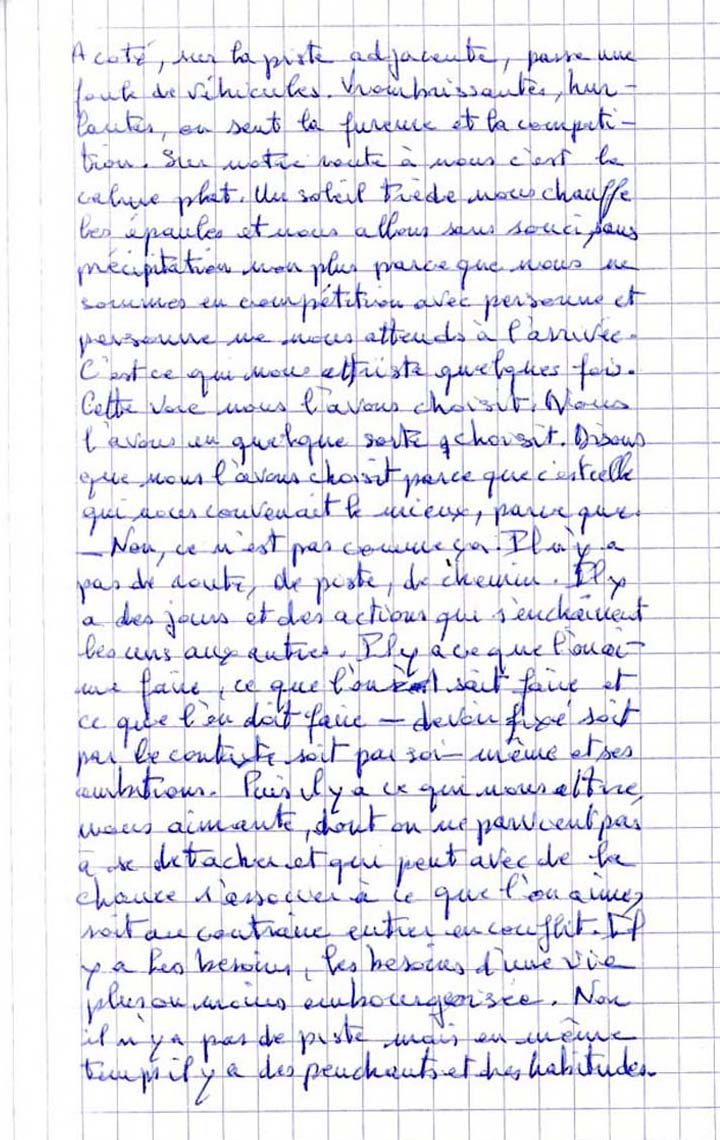 A coté, sur la piste adjacente, passe une
foule de véhicules. Vrombrissantes, hur-
lantes, on sent la fureur et la compéti-
tion. Sur notre route à nous c'est le
calme plat. Un soleil tiède nous chauffe
les épaules et nous allons sans souci, sans
précipitation non plus parce que nous ne
sommes en compétition avec personne et
personne ne nous attends à l'arrivée.
C'est ce qui nous attriste quelques fois.
Cette voie nous l'avons choisit. Nous
l'avons en quelque sorte choisit. Disons
que nous l'avons choisit parce que c'est celle
qui nous convenait le mieux, parce que.
— Non, ce n'est pas comme ça. Il n'y a
pas de doute, de piste, de chemin. Il y
a des jours et des actions qui s'enchainent
les uns aux autres. Il y a ce que l'on ai-
me faire, ce que l'on sait faire et
ce que l'on doit faire — devoir fixé soit
par le contexte soit par soi-même et ses
ambitions. Puis il y a ce qui nous attire,
nous aimante, dont on ne parvient pas
à se détacher et qui peut avec de la
chance s'associer à ce que l'on aime,
soit au contraire entrer en conflit. Il
y a les besoins, les besoins d'une vie
plus ou moins embourgeoisée. Non
il n'y a pas de piste mais en même
temps il y a des penchants et des habitudes.